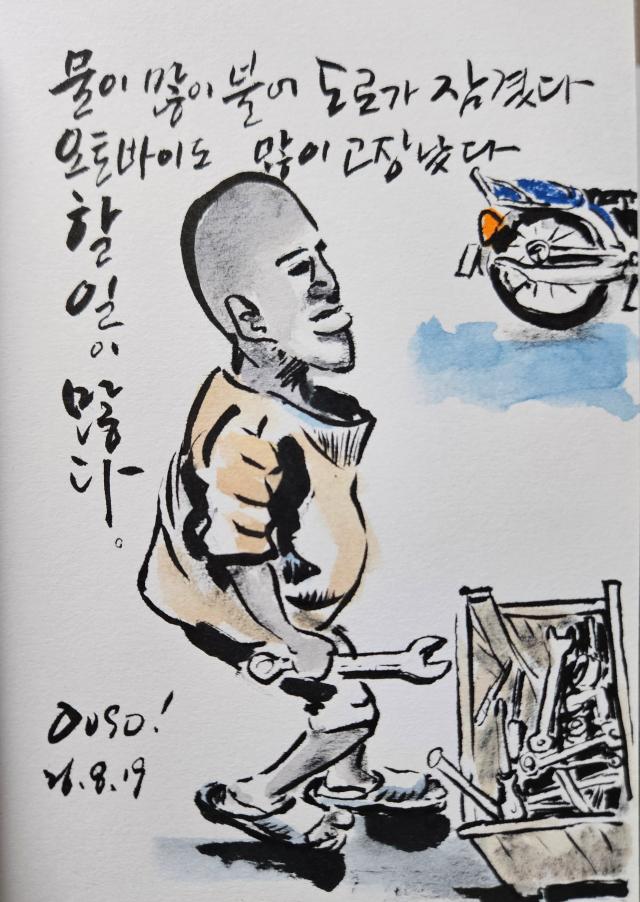 물이 많이 불어 도로가 잠겼다
오토바이도 많이 고장났다
할
일
이
많
다.
OUSO!
26.8.19